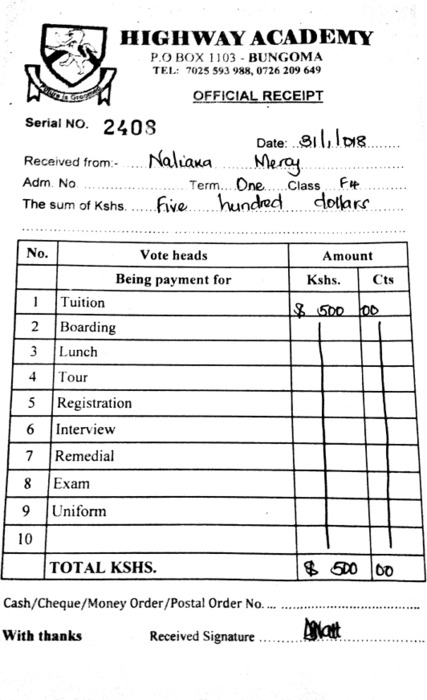 HIGHWAY ACADEMY
P.O BOX 1103 - BUNGOMA
TEL: 7025 593 988, 0726 209 649
OFFICIAL RECEIPT
Serial NO. 2408
Date: 31/1/018
Received from:- Naliaka Mercy
Adm. No. Term. One Class F4
The sum of Kshs. Five hundred dollars
No. Vote heads Amount
Being payment for Kshs. Cts
1 Tuition $ 500 00
2 Boarding
3 Lunch
4 Tour
5 Registration
6 Interview
7 Remedial
8 Exam
9 Uniform
10
TOTAL KSHS. $ 500 00
Cash/Cheque/Money Order/Postal Order No.
With thanks Received Signature